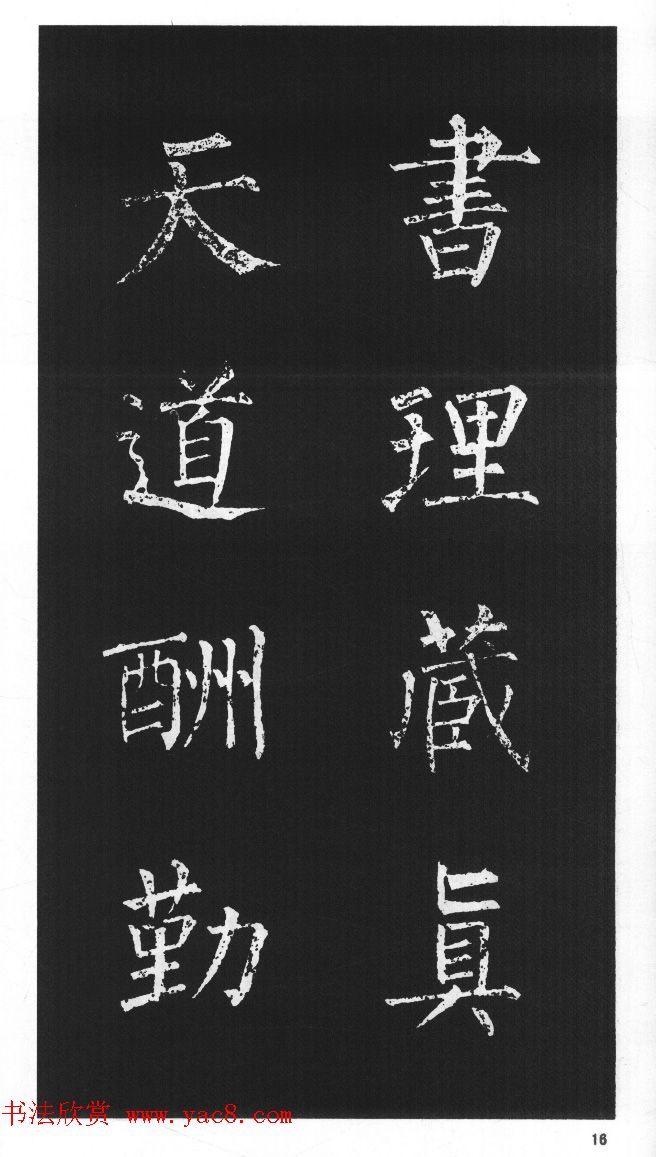 書理蔵真
天道酬勤
书法欣赏 www.yac8.com
16